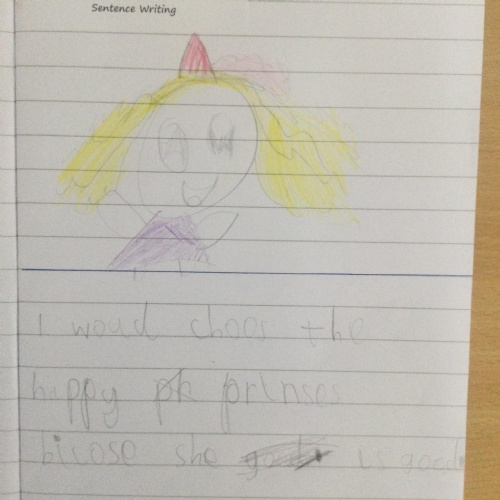 Sentence Writing
I woud choos the
happy pk prinses
bicose she is good